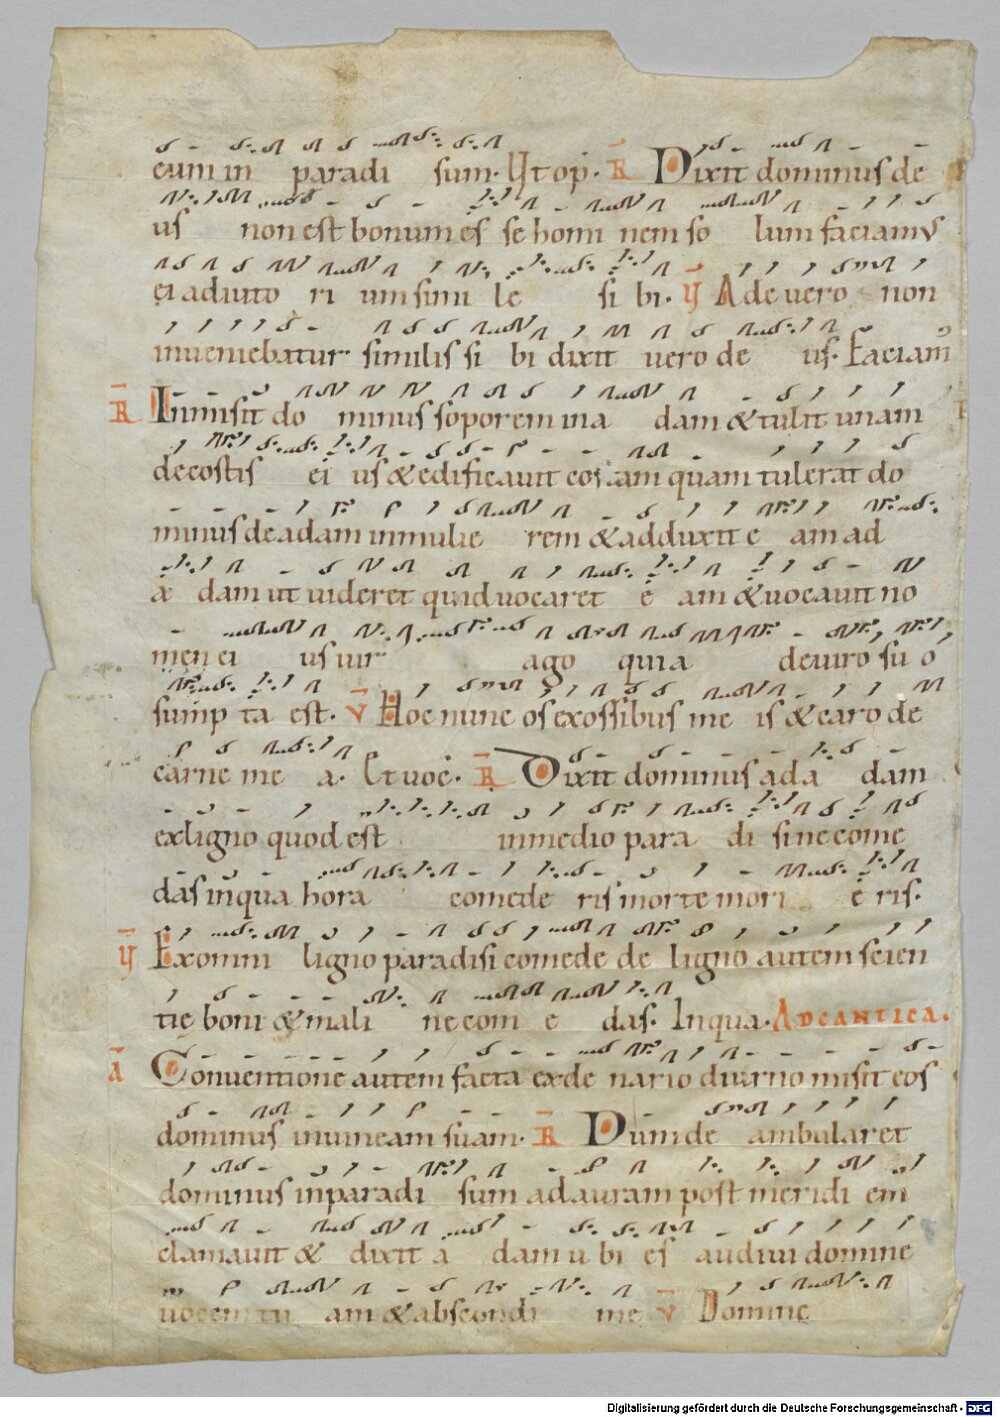 eum in paradi sum. Ut op. R Dixit dominus de
us non est bonum es se homi nem so lum faciamus
ei adiuto ri um simi le si bi. V Ade vero non
inveniebatur similis si bi dixit vero de us. Faciam
R Inmisit do minus soporem in a dam & tulit unam
de costis ei us & edificavit costam quam tulerat do
minus de adam in mulie rem & adduxit e am ad
a dam ut videret quid vocaret e am & vocavit no
men ei us vir ago quia de viro su o
sump ta est. V Hoc nunc os ex ossibus me is & caro de
carne me a. Et voc. R Dixit dominus ad a dam
ex ligno quod est in medio para di si ne come
das in qua hora comede ris morte mori e ris.
V Ex omni ligno paradisi comede de ligno autem scien
tie boni & mali ne com e das. In qua. AD CANTICA.
A Conventione autem facta ex de nario diurno misit eos
dominus in vineam suam. R Dum de ambularet
dominus in paradi sum ad auram post meridi em
clamavit & dixit a dam u bi es audivi domine
vocem tu am & abscondi me V Domine
Digitalisierung gefördert durch die Deutsche Forschungsgemeinschaft - DFG